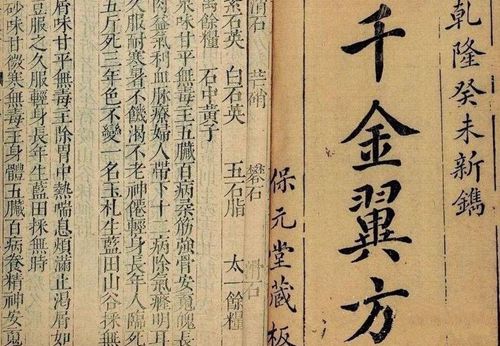 乾隆癸未新鐫
千金翼方
保元堂藏板
滑石 芒硝 礬石 滑石
紫石英 白石英 五石脂 太一餘糧
禹餘糧 石中黄子
味甘平無毒主五臟百病柔筋強骨安䰟魄長
肉益氣利血脉療婦人帶下十二病除氣癃明耳
久服耐寒暑不飢渴不老神僊輕身長年人臨死
五斤死三年色不變 名玉札生藍田山谷採無
屑味甘平無毒主除胃中熱喘息煩滿止渴屑如
豆服之久服輕身長年生藍田採無時
砂味甘微寒無毒主身體五臟百病養精神安䰟